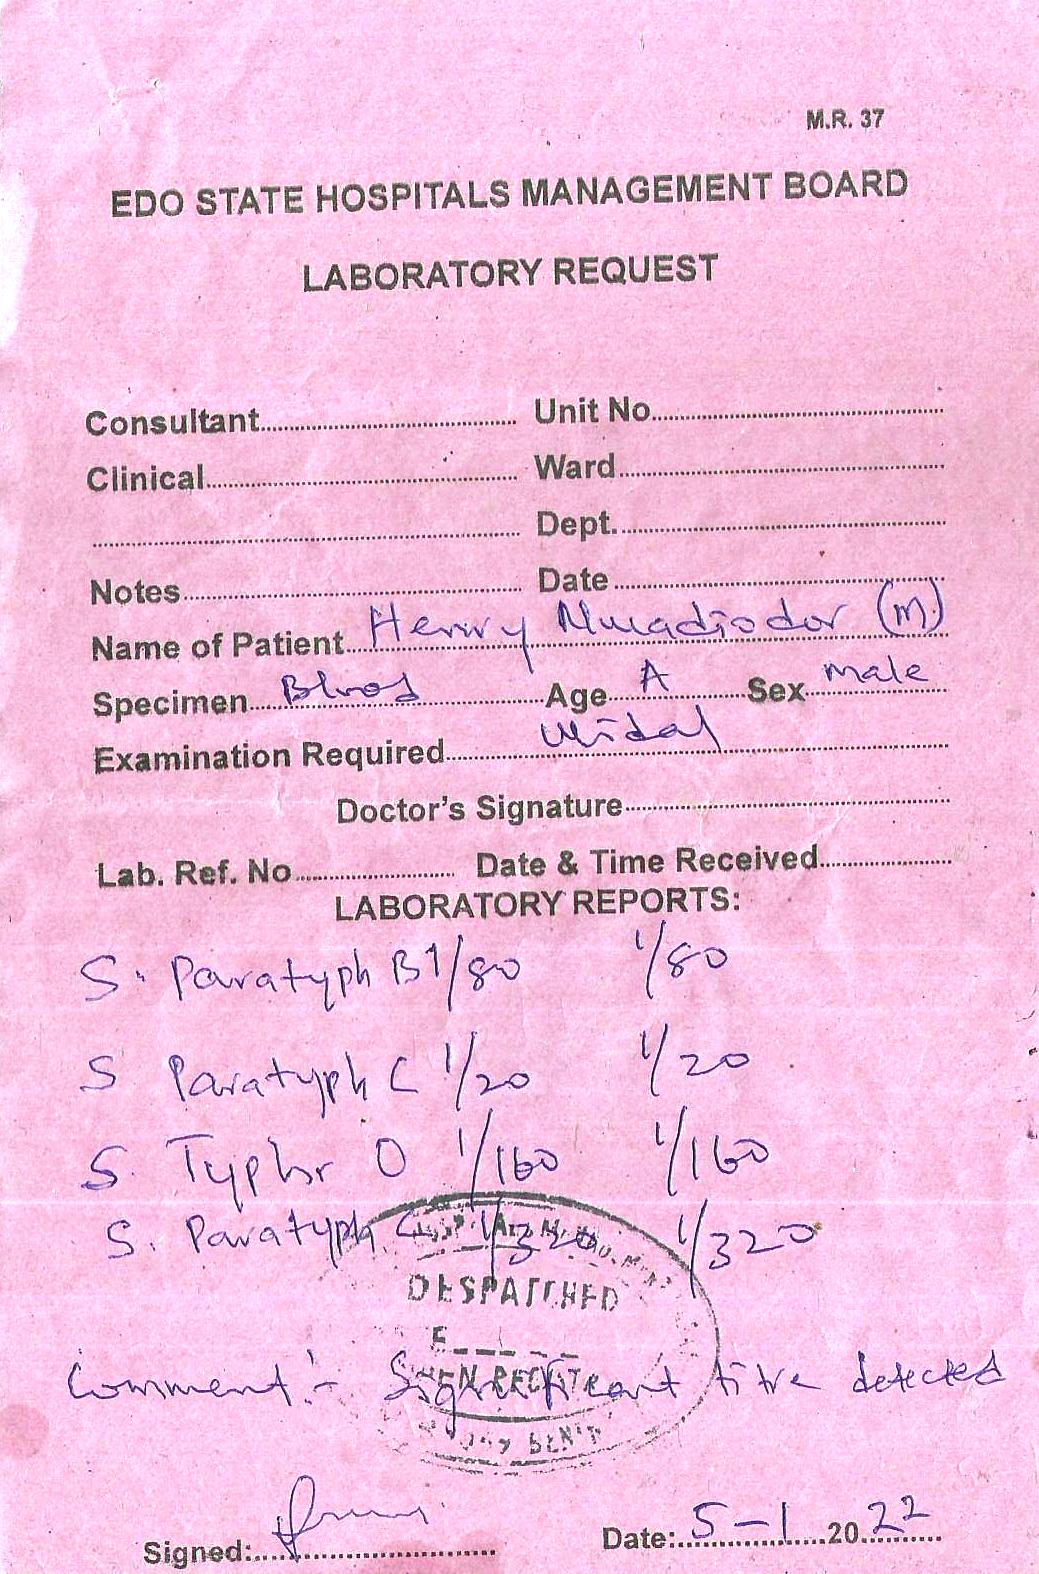 M.R. 37
EDO STATE HOSPITALS MANAGEMENT BOARD
LABORATORY REQUEST
Consultant.......... Unit No..........
Clinical.......... Ward..........
.......... Dept...........
Notes.......... Date..........
Name of Patient.... Henry Nwadiodor (m)
Specimen.... Blood Age.... A Sex.... male
Examination Required.......... Widal
Doctor's Signature..........
Lab. Ref. No.......... Date & Time Received..........
LABORATORY REPORTS:
S. Paratyph B 1/80 1/80
S Paratyph C 1/20 1/20
S. Typhi O 1/160 1/160
S. Paratyph 1/320 1/320
DESPATCHED
Comment:- Significant titre detected
Signed:..........
Date:.... 5-1 ....20.. 22